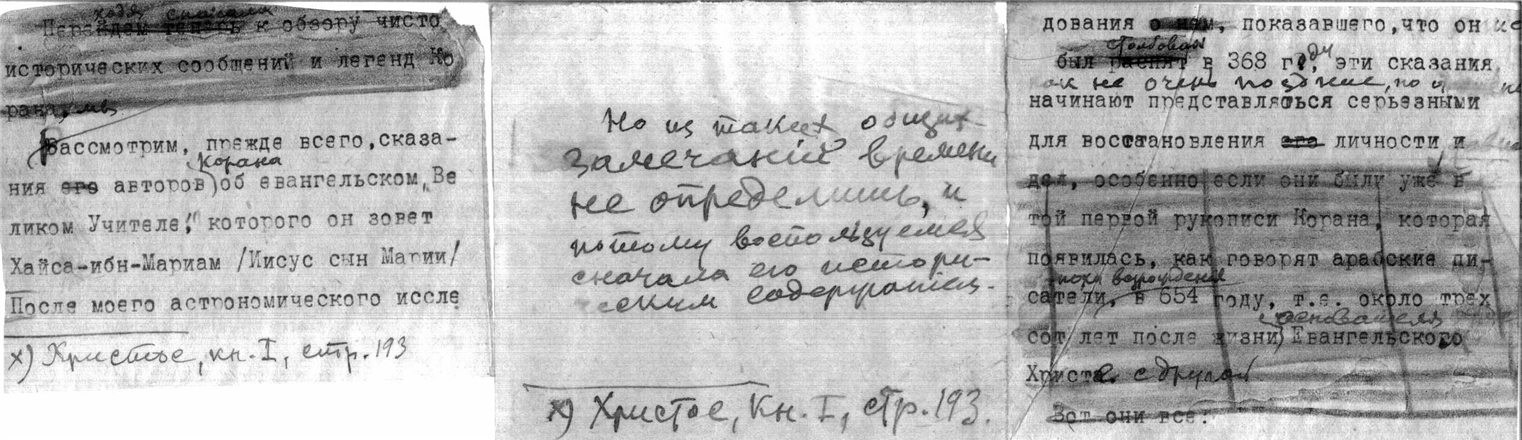 ходя сначала
Перейдем теперь к обзору чисто
исторических сообщений и легенд Ко
рана,
Рассмотрим, прежде всего, сказа-
Корана
ния его авторов) об евангельском „Ве
ликом Учителе," которого он зовет
Хайса-ибн-Мариам /Иисус сын Марии/
После моего астрономического иссле
х) Христос, кн. I, стр. 193
Но из таких общих
замечаний времени
не определишь, и
потому воспользуемся
сначала его истори-
ческим содержанием.
х) Христос, Кн. I, стр. 193.
дования о нем, показавшего, что он
столбован
был распят в 368 году, эти сказания
не очень поздние, но и
начинают представляться серьезными
для восстановления его личности и
дел, особенно если они были уже в
той первой рукописи Корана, которая
появилась, как говорят арабские пи-
сатели, в 654 году, т.е. около трех
основателя
сот лет после жизни) Евангельского
Христа. с другой
Вот они все: